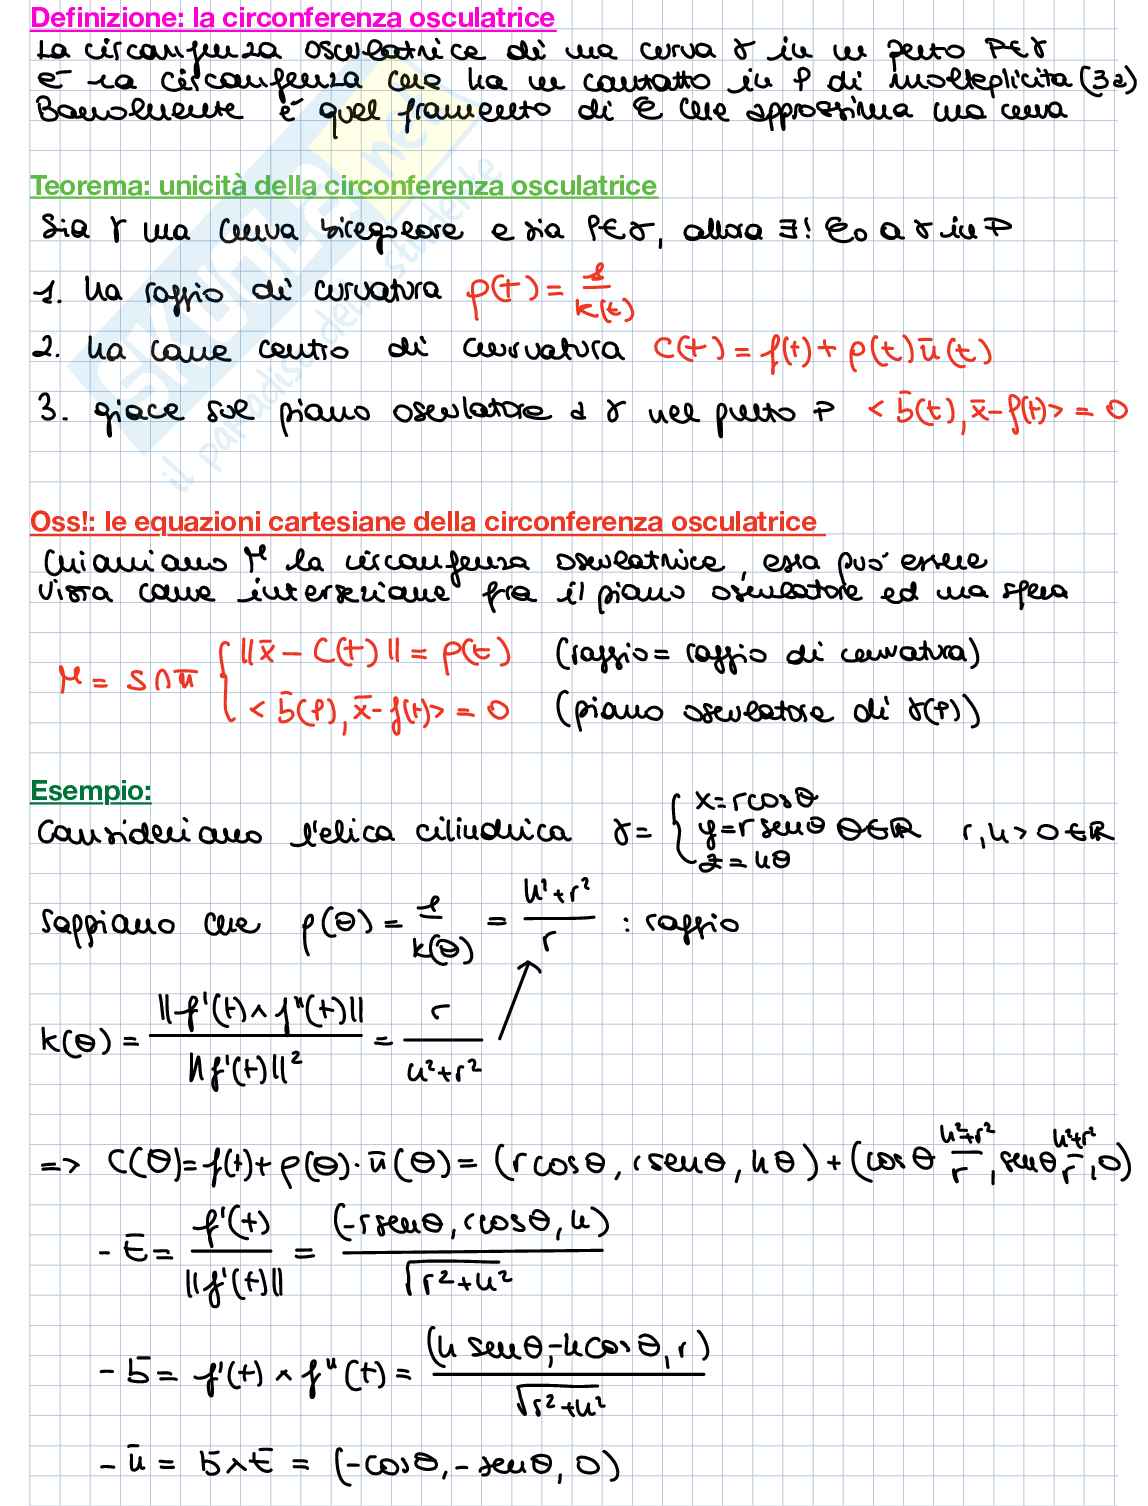 Definizione: la circonferenza osculatrice
La circonferenza osculatrice di una curva γ in un punto P∈γ
è la circonferenza che ha un contatto in P di molteplicità (3a)
Banalmente è quel frammento di C che approssima una curva
Teorema: unicità della circonferenza osculatrice
Sia γ una curva biregolare e sia P∈γ, allora ∃! C₀ a γ in P
1. ha raggio di curvatura ρ(t) = 1/k(t)
2. ha come centro di curvatura C(t) = f(t) + ρ(t) n̄(t)
3. giace sul piano osculatore a γ nel punto P < b̄(t), x̄ - f(t) > = 0
Oss!: le equazioni cartesiane della circonferenza osculatrice
Chiamiamo M la circonferenza osculatrice, essa può essere
vista come intersezione fra il piano osculatore ed una sfera
M = S∩π { ||x̄ - C(t)|| = ρ(t) (raggio = raggio di curvatura)
< b̄(P), x̄ - f(t) > = 0 (piano osculatore di γ(P))
Esempio:
Consideriamo l'elica cilindrica γ = { x = r cosθ
y = r senθ θ∈ℝ r, h > 0 ∈ ℝ
z = hθ
Sappiamo che ρ(θ) = 1/k(θ) = (h² + r²)/r : raggio
k(θ) = ||f'(t) ∧ f''(t)|| / ||f'(t)||² = r/(h² + r²)
=> C(θ) = f(t) + ρ(θ) · n̄(θ) = (r cosθ, r senθ, hθ) + (cosθ (h²+r²)/r, senθ (h²+r²)/r, 0)
- t̄ = f'(t)/||f'(t)|| = (-r senθ, r cosθ, h)/√(r² + h²)
- b̄ = f'(t) ∧ f''(t) = (h senθ, -h cosθ, r)/√(r² + h²)
- n̄ = b̄ ∧ t̄ = (-cosθ, -senθ, 0)
SKUOLA.net
il paradiso dello studente